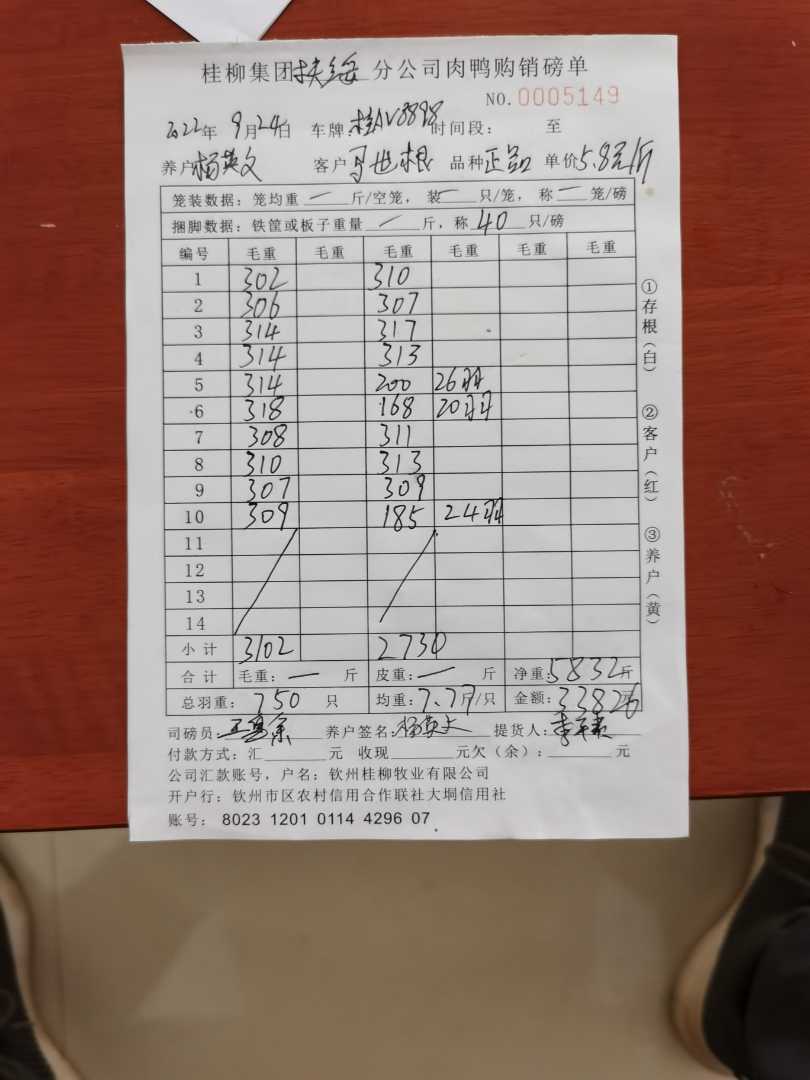 桂柳集团扶绥分公司肉鸭购销磅单
NO.0005149
2022年 9月24日 车牌:桂AV8898 时间段: 至
养户杨英文 客户马世根 品种正品 单价5.8元/斤
笼装数据:笼均重 一 斤/空笼,装 一 只/笼,称 一 笼/磅
捆脚数据:铁筐或板子重量 一 斤,称 40 只/磅
编号 毛重 毛重 毛重 毛重 毛重 毛重
1 302 310
2 306 307
3 314 317
4 314 313
5 314 200 26羽
6 318 168 20羽
7 308 311
8 310 313
9 307 309
10 309 185 24羽
11
12
13
14
小计 3102 2730
合计 毛重: 一 斤 皮重: 一 斤 净重:5832斤
总羽重: 750 只 均重:7.77斤/只 金额:33826元
司磅员 养户签名:杨英文 提货人:
付款方式:汇 元 收现 元欠(余): 元
公司汇款账号,户名:钦州桂柳牧业有限公司
开户行:钦州市区农村信用合作联社大垌信用社
账号: 8023 1201 0114 4296 07
①存根(白)
②客户(红)
③养户(黄)